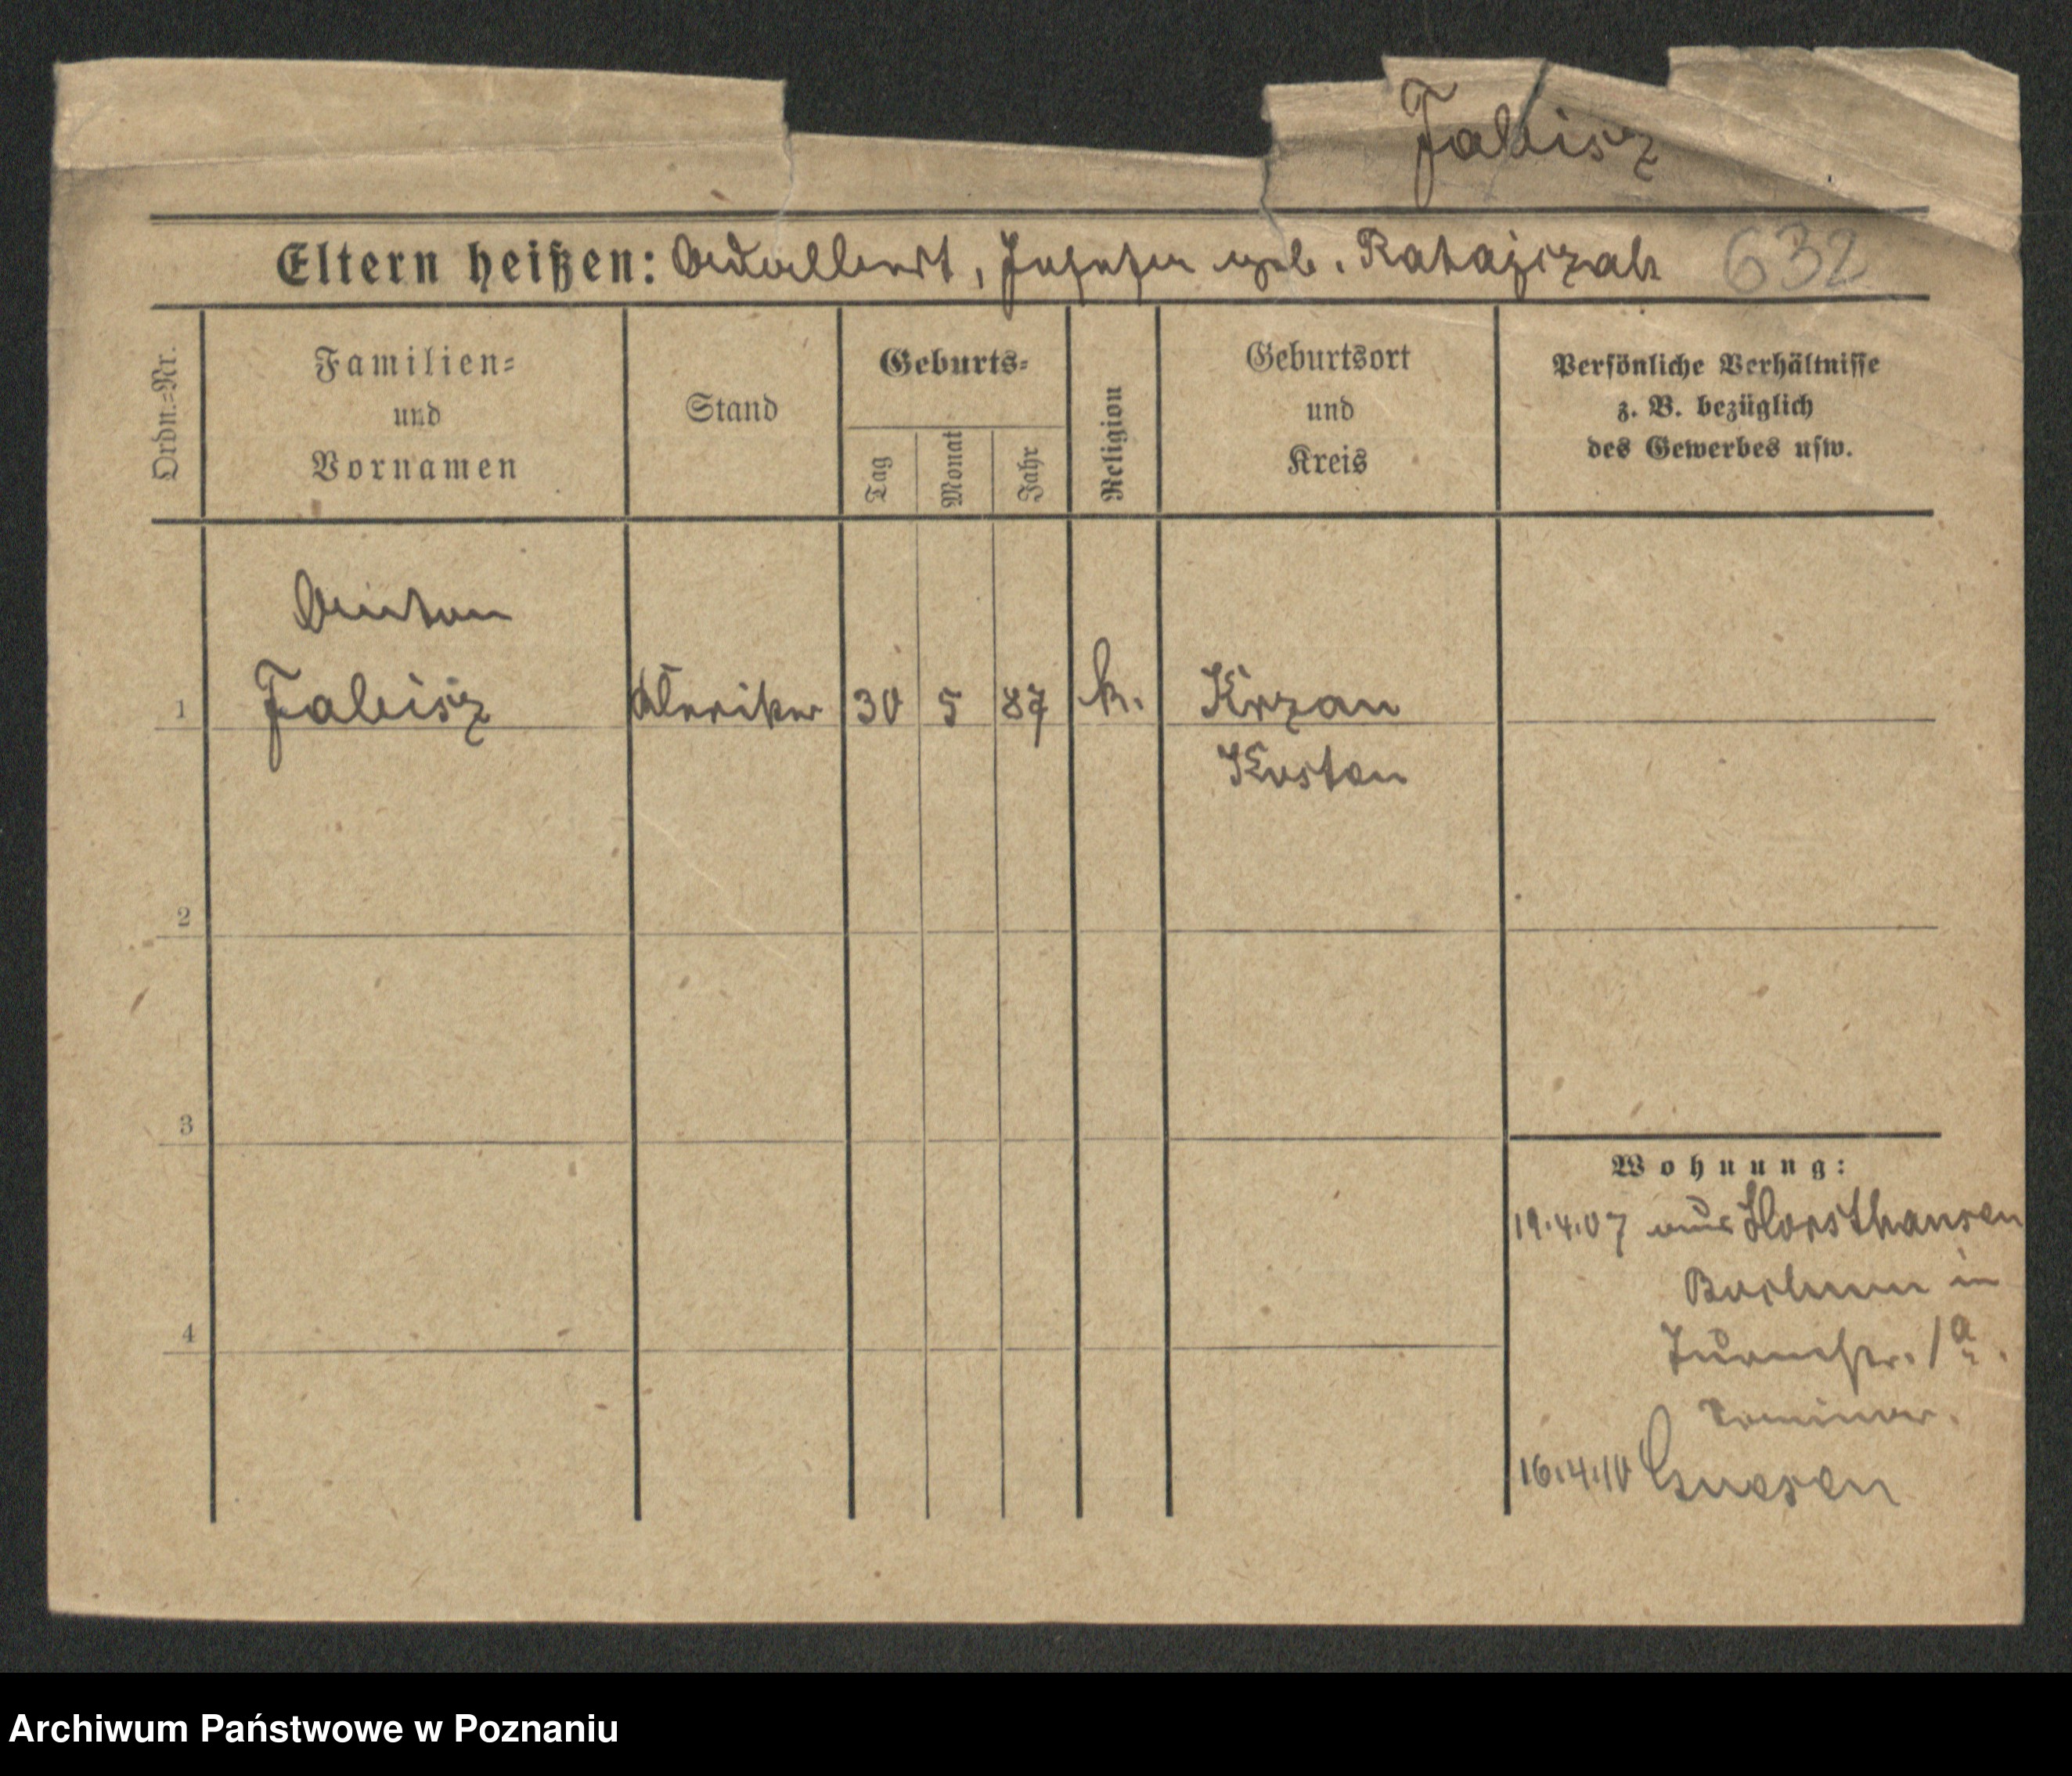 Fabisz
Eltern heißen: Adalbert, Josefa geb. Ratajczak 632
Ordn.=Nr.
Familien=
und
Vornamen
Stand
Geburts=
Tag
Monat
Jahr
Religion
Geburtsort
und
Kreis
Persönliche Verhältnisse
z. B. bezüglich
des Gewerbes usw.
Anton
1 Fabisz Kleriker 30 5 87 k. Krzan
Kosten
2
3
4
Wohnung:
19.4.07 aus Horsthausen
Bochum in
1a.
Seminar.
16.4.10 Gnesen
Archiwum Państwowe w Poznaniu